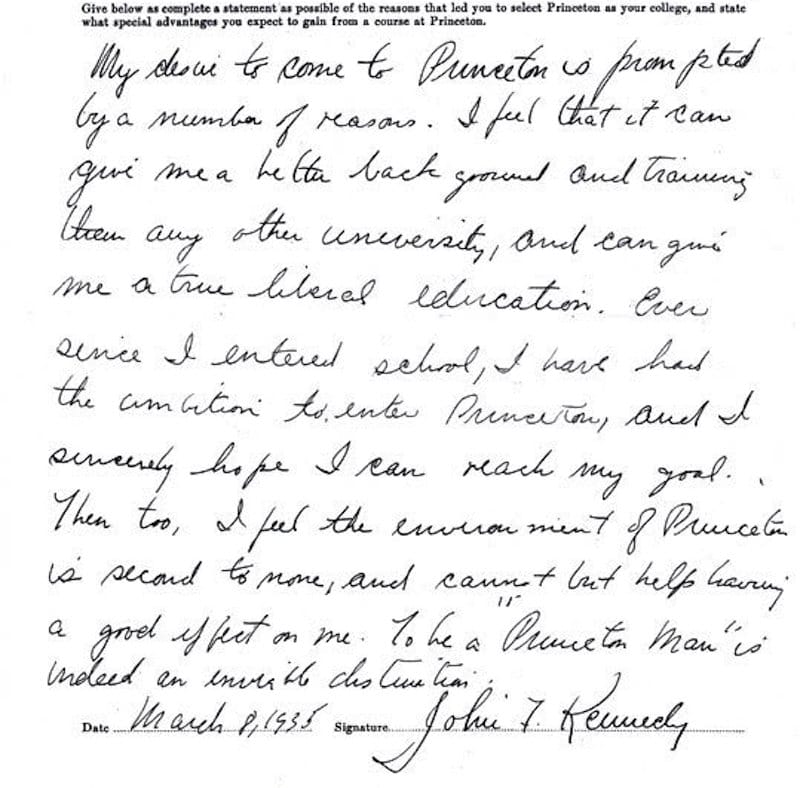 Give below as complete a statement as possible of the reasons that led you to select Princeton as your college, and state
what special advantages you expect to gain from a course at Princeton.
My desire to come to Princeton is prompted
by a number of reasons. I feel that it can
give me a better back ground and training
than any other university, and can give
me a true liberal education. Ever
since I entered school, I have had
the ambition to enter Princeton, and I
sincerely hope I can reach my goal.
Then too, I feel the environment of Princeton
is second to none, and cannot but help having
a good effect on me. To be a "Princeton Man" is
indeed an enviable distinction.
Date March 8, 1935 Signature John F. Kennedy